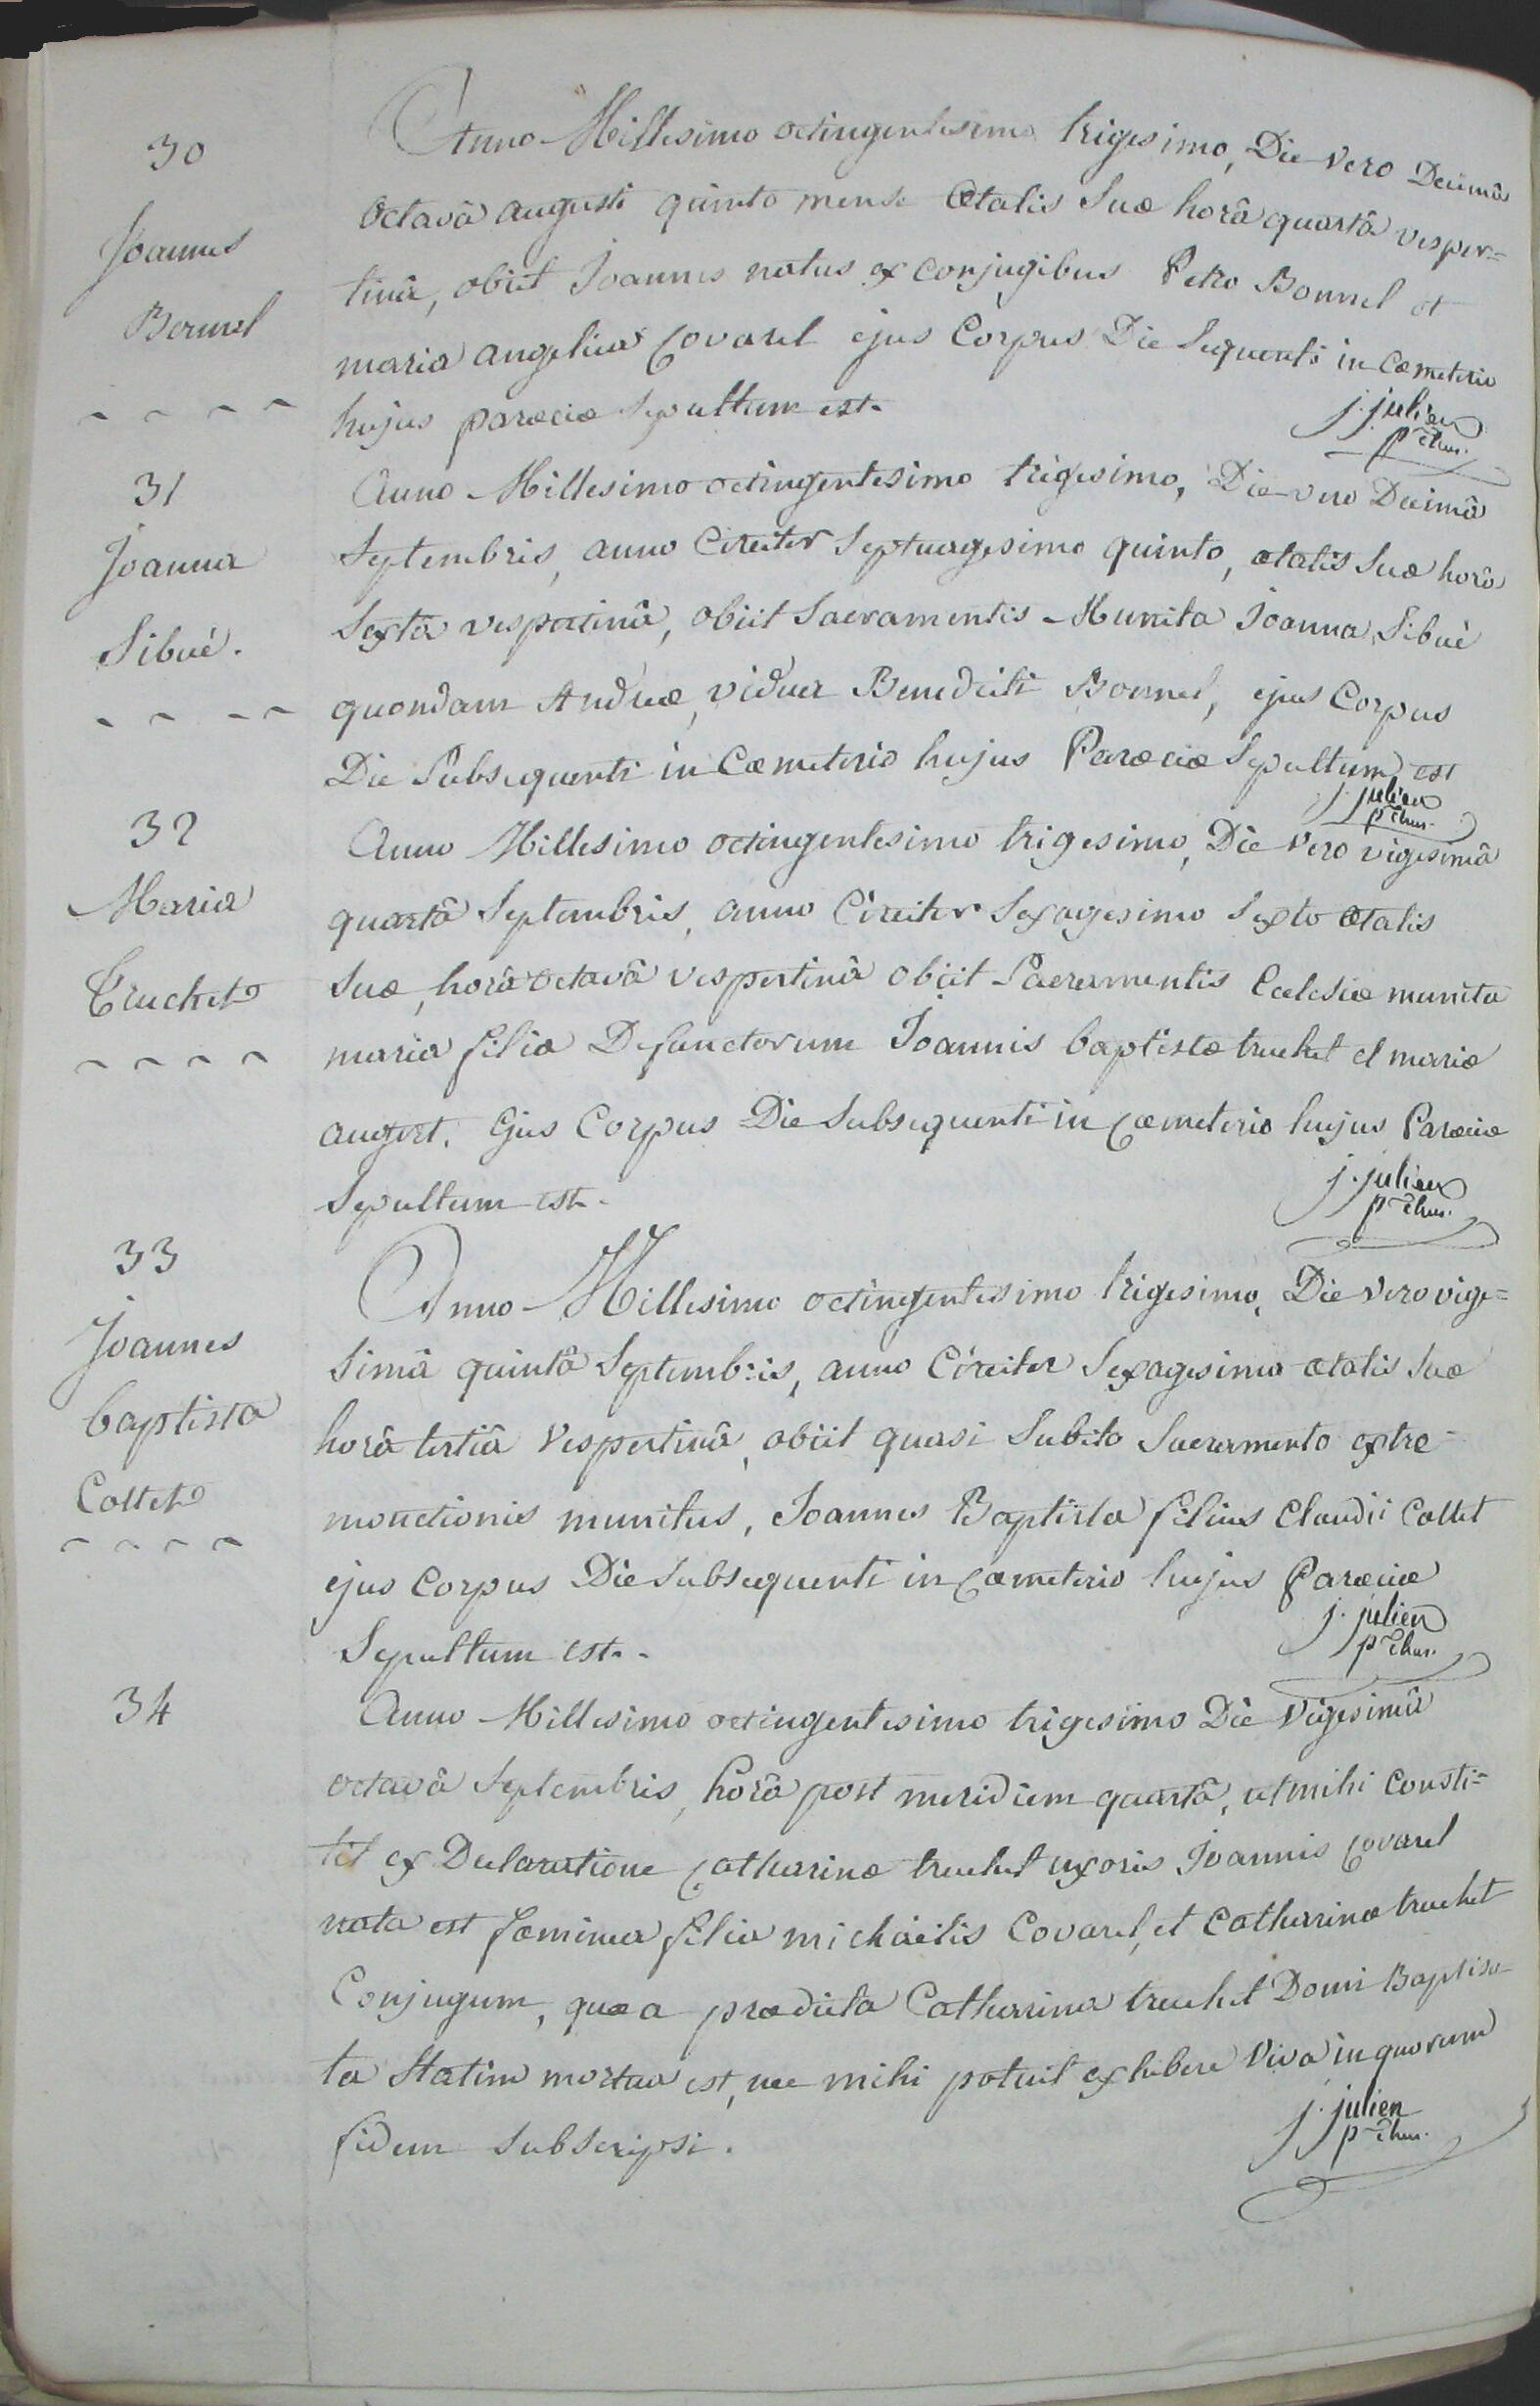 30
Joannes
Bonnel
Anno Millesimo octingentesimo trigesimo, Die vero Decimâ
octavâ augusti quinto mense Ætatis Suæ horâ quartâ vesper=
tinâ, obiit Joannes natus ex conjugibus Petro Bonnel et
maria angelica Covarel ejus Corpus Die Sequenti in Cæmeterio
hujus parœciæ Sepultum est.
j. julien
p r̃chus.
31
Joanna
Sibué.
Anno Millesimo octingentesimo trigesimo, Die vero Decimâ
Septembris, anno Circiter Septuagesimo quinto, ætatis Suæ horâ
Sextâ vespertinâ, obiit Sacramentis Munita Joanna Sibué
quondam Andreæ, vidua Benedicti Bonnel, ejus Corpus
Die Subsequenti in Cæmeterio hujus Parœciæ Sepultum est
j. julien
p r̃chus.
32
Maria
Truchet
Anno Millesimo octingentesimo trigesimo, Die vero vigesimâ
quartâ Septembris, anno Circiter Sexagesimo Sexto Ætatis
Suæ, horâ octavâ vespertinâ obiit Sacramentis Ecclesiæ munita
maria filia Defunctorum Joannis baptistæ truchet et mariæ
augert. Ejus Corpus Die Subsequenti in Cæmeterio hujus Parœciæ
Sepultum est.
j. julien
p r̃chus.
33
Joannes
baptista
Collet
Anno Millesimo octingentesimo trigesimo, Die vero vige=
simâ quintâ Septembris, anno Circiter Sexagesimo ætatis Suæ
horâ tertiâ Vespertinâ, obiit quasi Subito Sacramento extre-
mounctionis munitus, Joannes Baptista filius Claudii Collet
ejus Corpus Die Subsequenti in Cæmeterio hujus Parœciæ
Sepultum est.
j. julien
p r̃chus.
34
Anno Millesimo octingentesimo trigesimo Die Vigesimâ
octavâ Septembris, horâ post meridiem quartâ, ut mihi consti=
tit ex Declaratione Catharinæ truchet uxoris Joannis Covarel
nata est fœmina filia michaëlis Covarel, et Catharinæ truchet
Conjugum, quæ a prædicta Catharina truchet Domi Baptisa
ta Statim mortua est, nec mihi potuit exhibere Viva in quorum
fidem Subscripsi.
j. julien
p r̃chus.